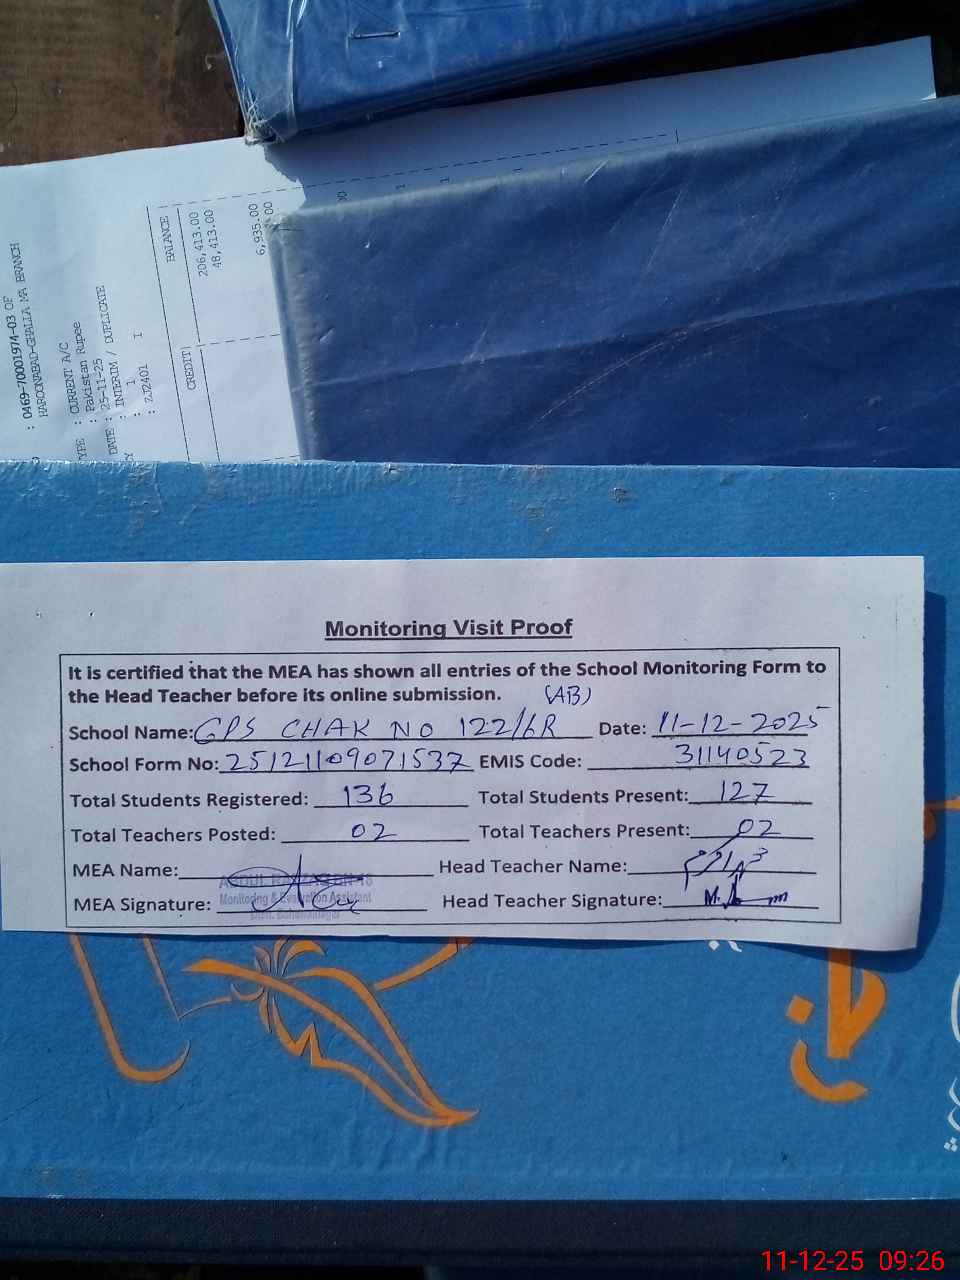 BALANCE
206,413.00
48,413.00
6,935.00
CREDIT
: 0469-70001974-03 OF
HAROONABAD-GHALLA MA BRANCH
YPE : CURRENT A/C
: Pakistan Rupee
DATE : 25-11-25
: INTERIM / DUPLICATE
: 1 I
: ZJ2401
Monitoring Visit Proof
It is certified that the MEA has shown all entries of the School Monitoring Form to
the Head Teacher before its online submission. (AB)
School Name: GPS CHAK NO 122/6R Date: 11-12-2025
School Form No: 25121109071537 EMIS Code: 31140523
Total Students Registered: 136 Total Students Present: 127
Total Teachers Posted: 02 Total Teachers Present: 02
MEA Name: Head Teacher Name:
Monitoring & Evaluation Assistant
MEA Signature: Head Teacher Signature:
11-12-25 09:26